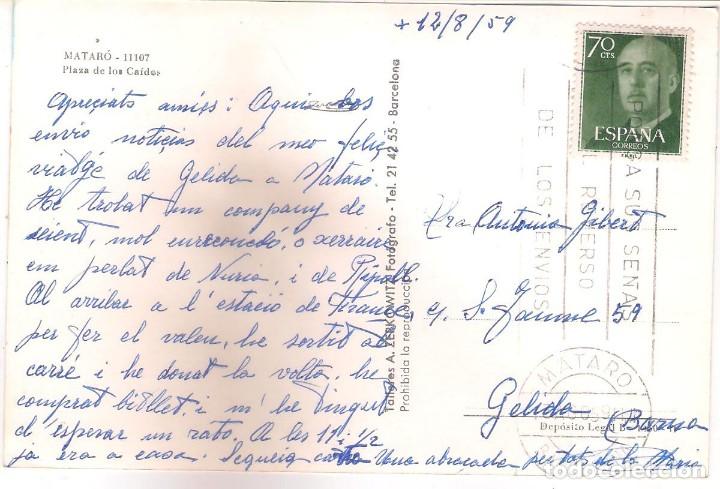 + 12/8/59
MATARÓ - 11107
Plaza de los Caídos
Apreciats amics: Aqui os
envio noticias del meu feliç
viatgé de Gelida a Mataró.
He trobat un company de
seient, mol enrecondó, o xerraire
em parlat de Nuria, i de Ripoll.
Al arrilar a l'estació de Fransa
per fer el valeu, he sortit al
carré i he donat la volta, he
comprat billet, i m'he tingut
d'esperar un rato. A les 11 i 1/2
ja era a casa. Una abracada per tot de la Maria
Talleres A. ZERKOWITZ Fotógrafo - Tel. 21 42 55 - Barcelona
Prohibida la reproducción
70 CTS
ESPAÑA
CORREOS
PONGA SU SEÑAS
AL REVERSO
DE LOS ENVIOS
Sra Antonia Gibert
c/ S. Jaume 59
Gelida (Barna
MATARO
Depósito Legal B.
todocoleccion